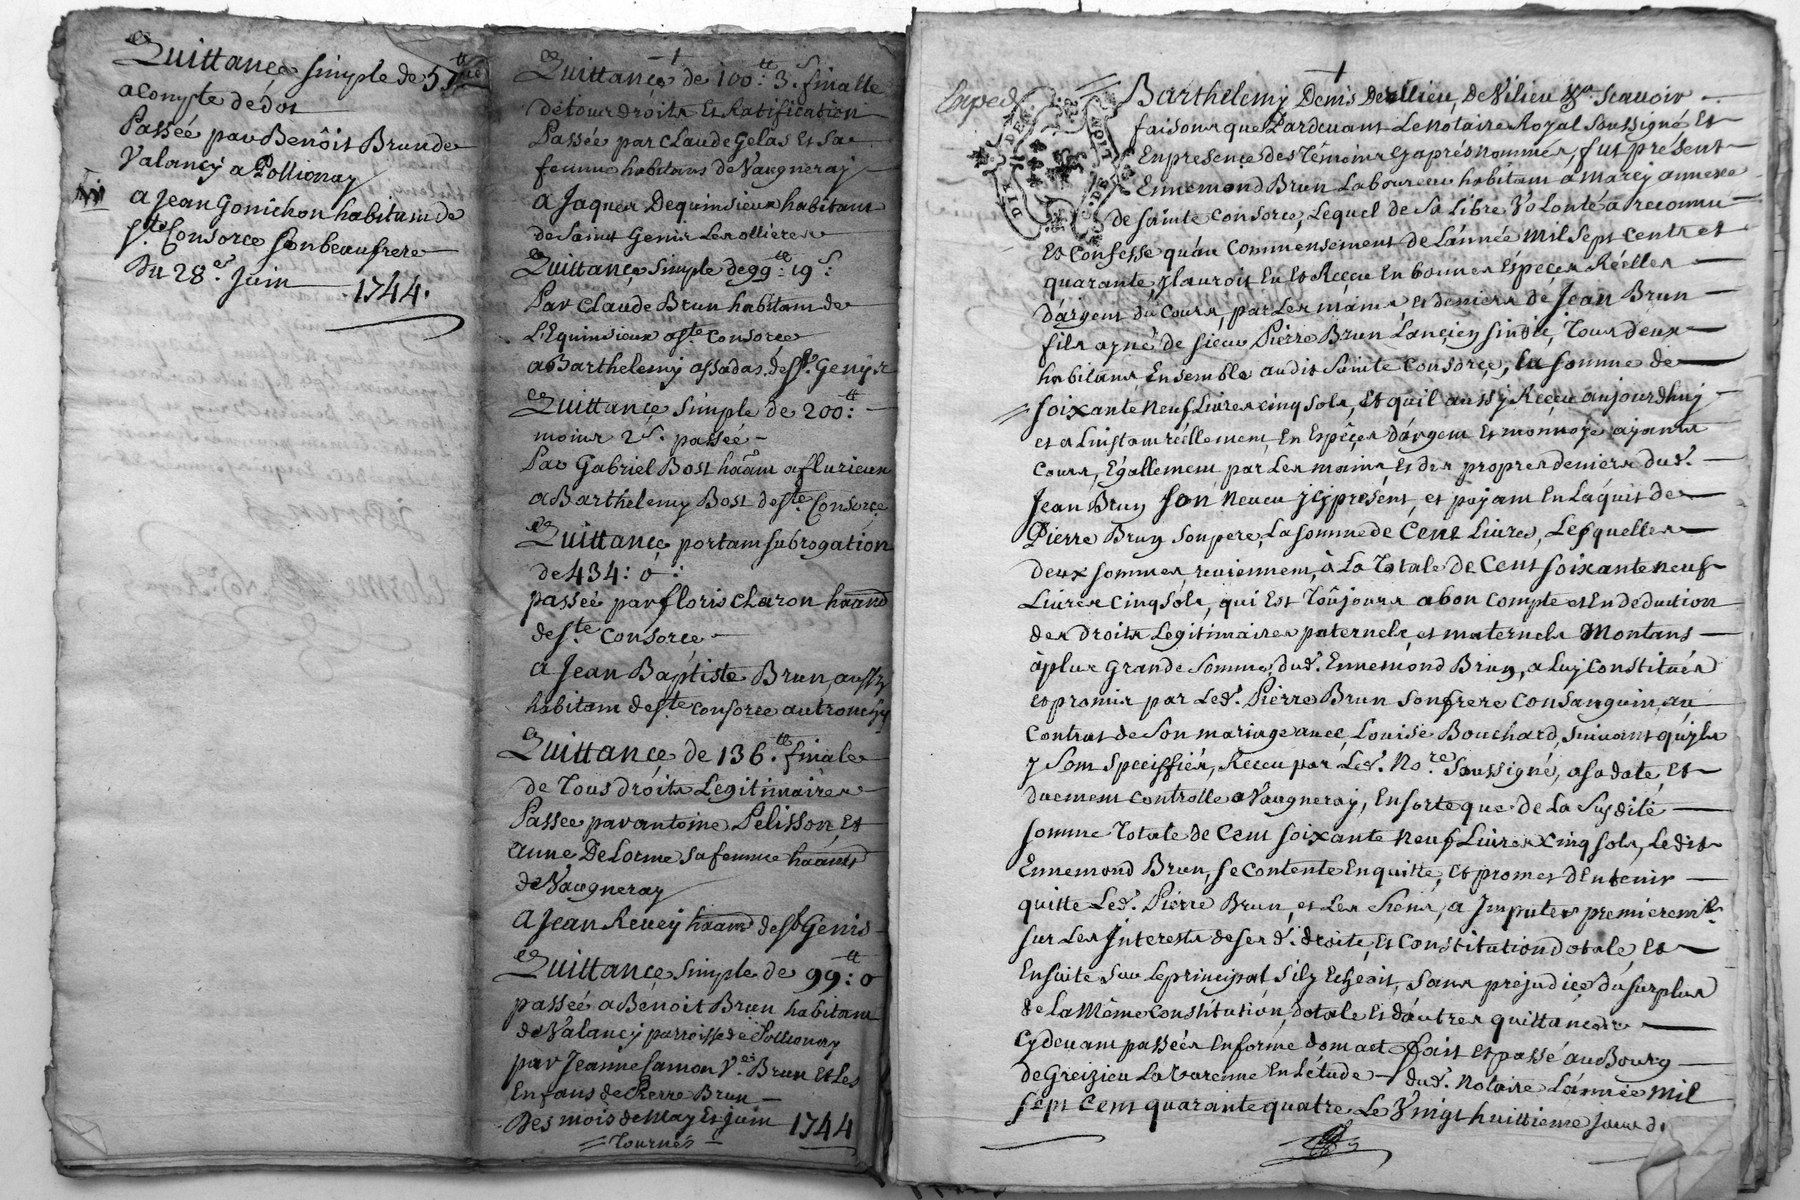 Quittançe simple de 57tt
a Compte dédot
Passée par Benôist Brun de
Valancy a Pollionay
a Jean Gonichon habitam de
Ste Consorce son beaufrere
Du 28e. Juin 1744.
Quittançe de 100tt: 3s. finalle
de tour droits et Ratification
Passée par Claude Gelas et Sa
femme habitans de Vaugneray
a Jaques Dequinsieux habitam
de Saint Genis Les ollieres
Quittançe Simple de 99tt: 19s:
Par Claude Brun habitam de
L'Equinsieux a Ste Consorce
a Barthelemy assadas de St. Genys
Quittançe Simple de 200tt:
moins 2s. passée
Par Gabriel Bost haam a flurieux
a Barthelemy Bost de Ste Consorçe
Quittançe portam subrogation
de 434: 0:
passée par floris Charon
de Ste Consorce
a Jean Baptiste Brun, aussy
habitam de Ste Consorce au tronchy
Quittançe de 136tt. finale
de Tous droits Legitimaires
Passée par antoine Pelisson, Et
anne DeLorme Sa femme haans
de Vaugneray
a Jean Revey haam de St Genis
Quittançe Simple de 99tt: 0
passée a Benoit Brun habitam
de Valancy parroisse de Pollionay
par Jeanne Samon Ve. Brun et Les
Enfans de Pierre Brun
Des mois de May et Juin 1744
Tournés
Exped
DIE DE
G. DE LION
Barthelemy Denis Deillieu, de Vilieu Scavoir
faisons que Pardevant Le Notaire Royal Soussigné Et
En presence des Témoins Cy aprés nommés, fut présent
Ennemond Brun Laboureur habitam à Marcy annexe
de Sainte Consorce, Lequel de Sa Libre Volonté a reconnu
Et Confesse qu'au Commensement de L'année Mil Sept Cent et
quarante, Il auroit Eu Et Reçeu En bonnes Espeçes Réelles
D'argent du Cours, par Les mains et deniers de Jean Brun
fils ayné de Sieur Pierre Brun L'ançien Sindic, Tous deux
habitans Ensemble audit Sainte Consorçe, La Somme de
Soixante Neuf Livres Cinq Sols, Et qu'il a aussy Reçeu aujourdhuy
et a L'instam réellement En Espêçes D'argent Et monnoye ayants
Cours, Egallement par Les mains Et des propres deniers dud.
Jean Brun Son Neveu Icy présent, et payam En L'aquit de
Pierre Brun Son pere, La Somme de Cent Livres, Lesquelles
deux Sommes reviennent, à La Totale de Cent Soixante neuf
Livres Cinq Sols, qui Est Toûjours a bon Compte et En deduction
des droits Legitimaires paternels et maternels Montans
à plus Grande Somme, dud. Ennemond Brun, a Luy Constitués
Et promis par Led. Pierre Brun Son frere Consanguin, au
Contrat de Son mariage avec Louise Bouchard, Suivant qu'yls
y Sont Speciffiés, Reçeu par Led. Nore Soussigné, a Sa date, Et
duement Controlle a Vaugneray, En Sorte que de La Susdite
Somme Totale de Cent Soixante Neuf Livres Cinq Sols, Ledit
Ennemond Brun, Se Contente En quitte, Et promet d'En tenir
quitte Led. Pierre Brun, et Les Siens, a Imputer premierement
Sur Les Interests de Ses d. droits, Et Constitution dotale, Et
Ensuite Sur Le principal S'ily Echeoit, Sans préjudice du Surplus
de La Même Constitution, dotale Et d'autres quittances
Cydevant passées En forme dont act. fait et passé au Bourg
de Greizieu La Varenne En L'étude dud. Notaire L'année Mil
Sept Cent quarante quatre Le Vingt huitieme Jour de